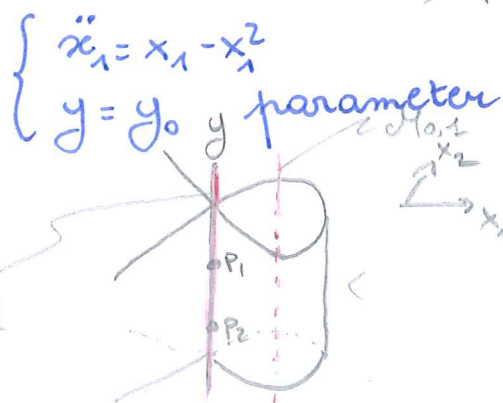 ẍ₁ = x₁ - x₁²
y = y₀ parameter
y M₀,₁
x₂
x₁
P₁
P₂